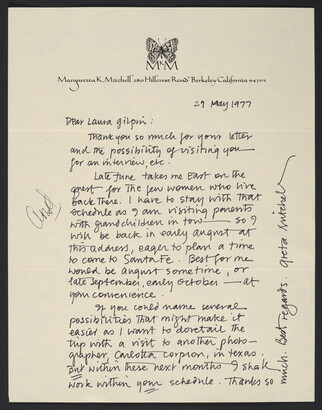 MKM
Margaretta K. Mitchell 280 Hillcrest Road Berkeley California 94705
29 May 1977
Dear Laura Gilpin:
Thank you so much for your letter
and the possibility of visiting you
for an interview, etc.
Late June takes me East on the
quest for the few women who live
back there. I have to stay with that
schedule as I am visiting parents
with grandchildren in tow — so I
will be back in early August at
this address, eager to plan a time
to come to Santa Fe. Best for me
would be August sometime, or
late September, early October — at
your convenience.
If you could name several
possibilities that might make it
easier as I want to dovetail the
trip with a visit to another photo-
grapher, Carlotta Corpron, in Texas.
But within these next months I shall
work within your schedule. Thanks so
much. Best regards. Greta Mitchell